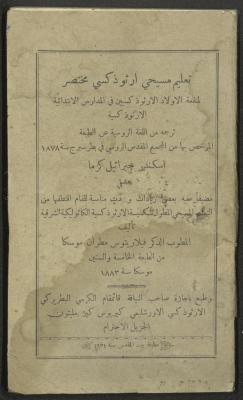 تعليم مسيحي ارثوذكسي مختصر
لمنفعة الاولاد الارثوذكسيين في المدارس الابتدائية
الارثوذكسية
ترجمه من اللغة الروسية عن الطبعة
المرخص بها من المجمع المقدس الروسي في بطرسبرج سنة ١٨٧٨
اسكندر جبرائيل كزما
مضيفا فيه بعض زيادات و مناسبة للمقام اقتطفها من
التعليم المسيحي المطول للكنيسة الارثوذكسية الكاثوليكية الشرقية
تأليف
المطوب الذكر فيلاريتوس مطران موسكا
من الطبعة الخامسة والستين
موسكا سنة ١٨٨٣
وطبع باجازة صاحب النيافة قائمقام الكرسي البطريركي
الارثوذكسي الاورشليمي كيريوس كير مليتون
الجزيل الاحترام
سنة